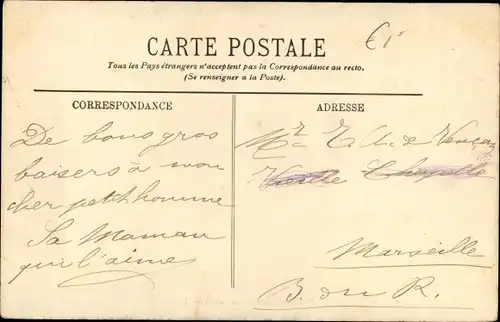 CARTE POSTALE
Tous les Pays étrangers n'acceptent pas la Correspondance au recto.
(Se renseigner à la Poste).
CORRESPONDANCE
De bons gros
baisers à mon
cher petit homme
Sa Maman
qui l'aime
ADRESSE
Vieille Chapelle
Marseille
B. du R.